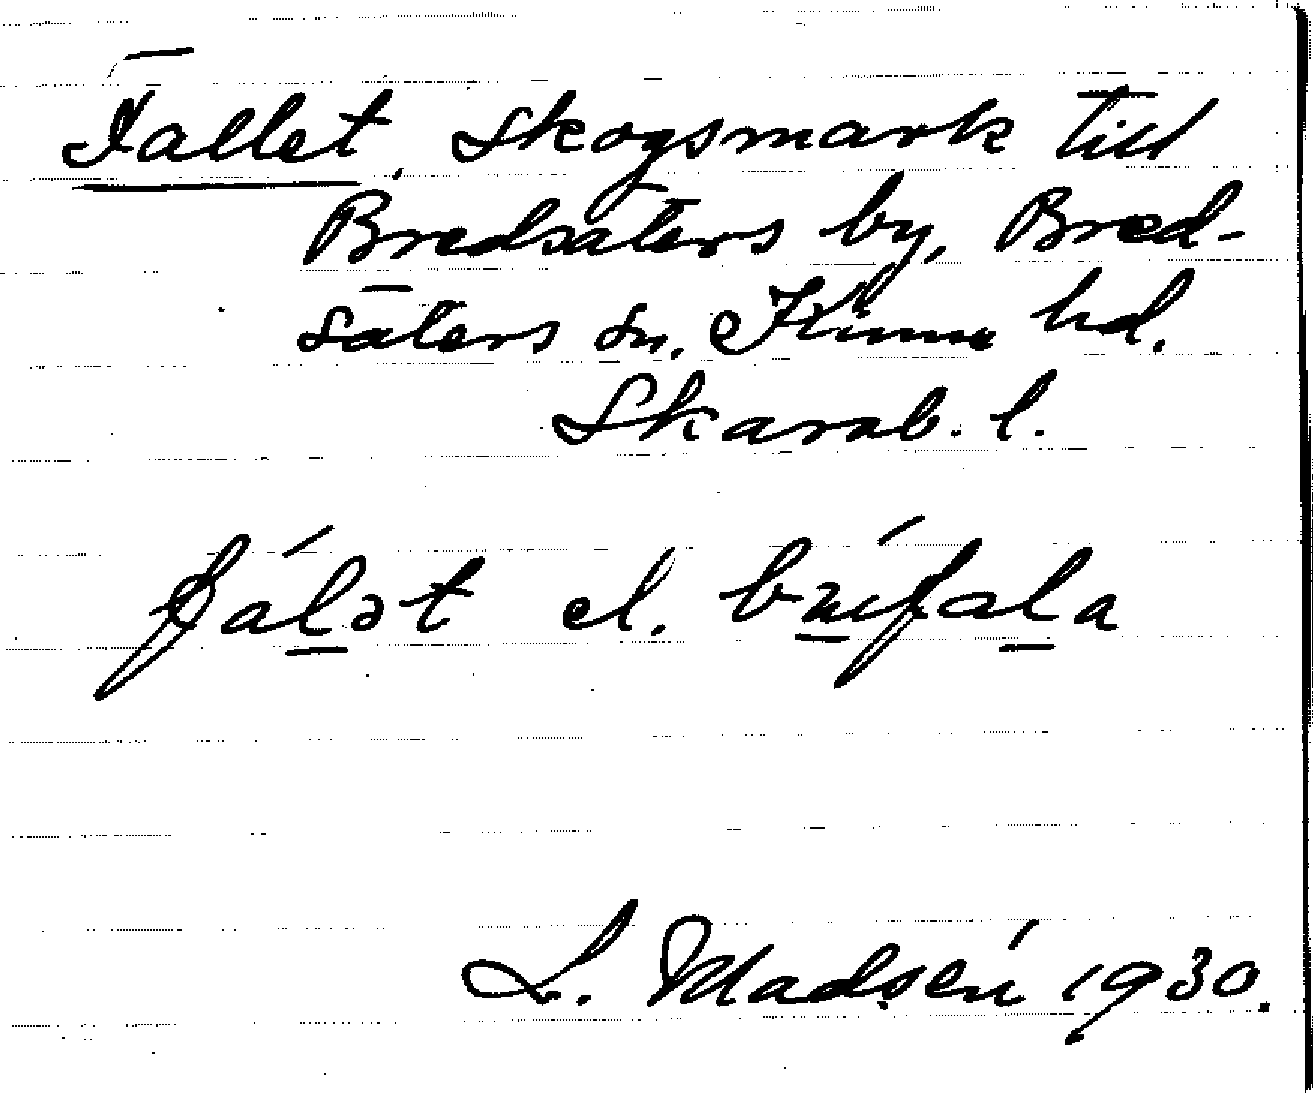 Fallet, Skogsmark till
Bredsäters by, Bred-
säters sn. Kinne hd.
Skarab. l.
fálət el.
L. Madsén 1930.